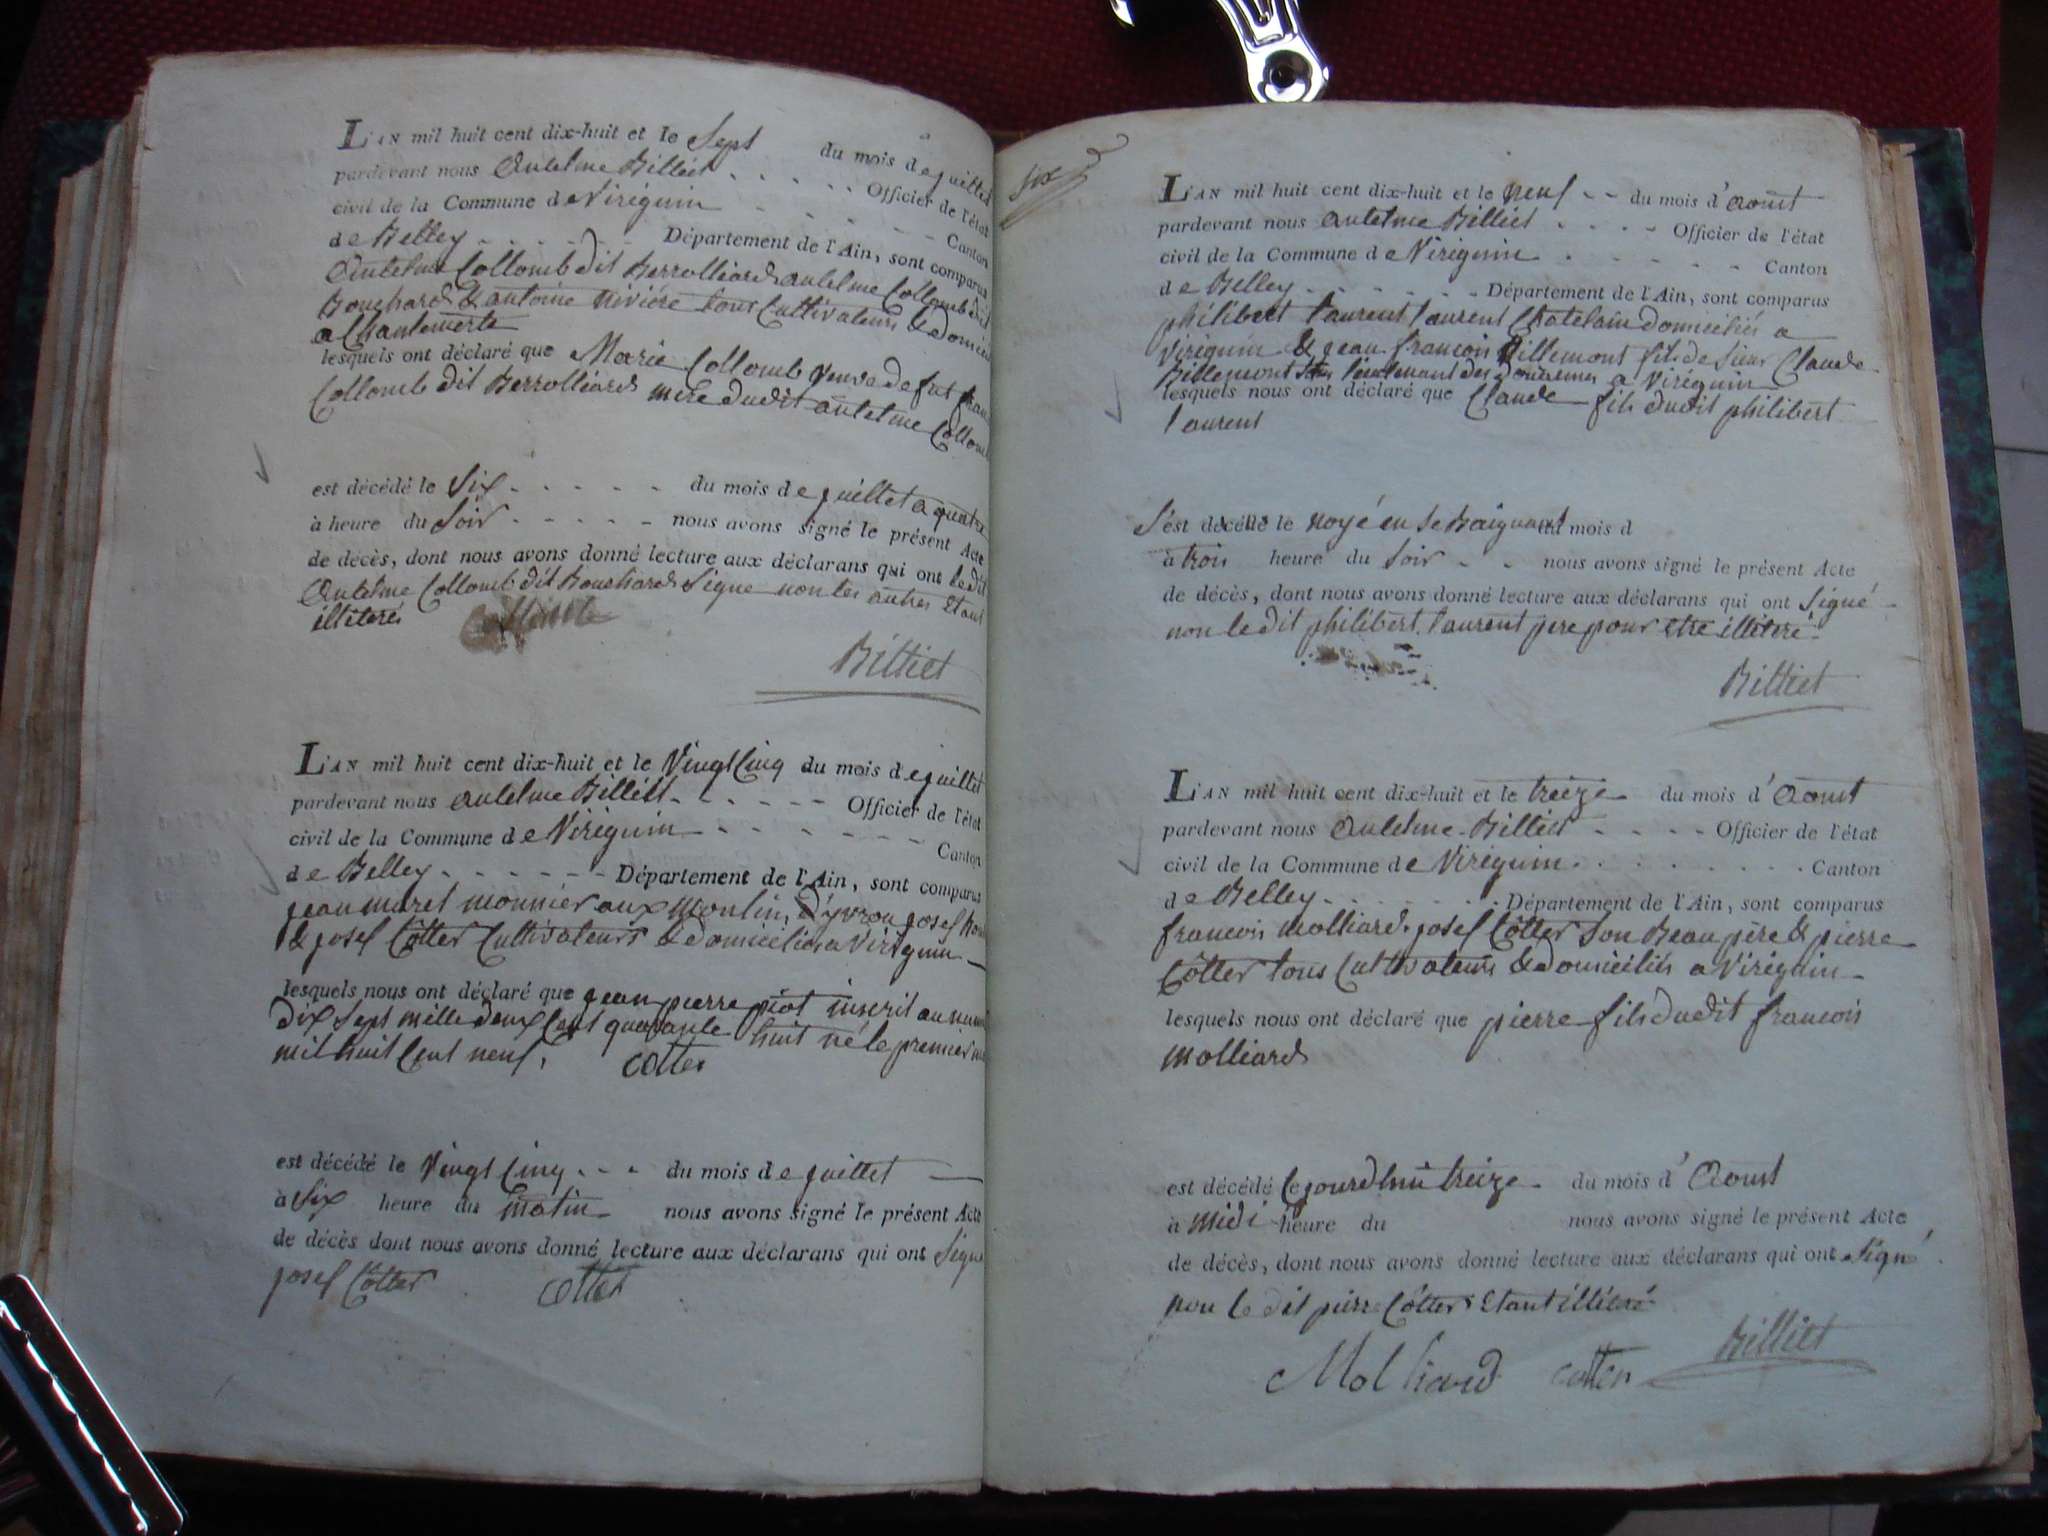 L'AN mil huit cent dix-huit et le Sept du mois de juillet
pardevant nous antelme Billiet Officier de l'état
civil de la Commune de Virignin Canton
de Belley Département de l'Ain, sont comparus
antelme Collomb dit Berrolliard antelme Collomb dit
Bouchard & antoine riviére tous Cultivateurs & domici
a Chantemerle
lesquels ont déclaré que Marie Collomb veuve de fut fran
Collomb dit Berrolliard mere dudit antelme Collom
est décédé le Six du mois de juillet a quatre
à heure du Soir nous avons signé le présent Acte
de décès, dont nous avons donné lecture aux déclarans qui ont le dit
antelme Collomb dit Bouchard Signe non les autres Etant
illiteré
Billiet
L'AN mil huit cent dix-huit et le Vingt Cinq du mois de juillet
pardevant nous antelme Billiet Officier de l'état
civil de la Commune de Virignin Canton
de Belley Département de l'Ain, sont comparus
jean muret monnier aux moulin d'yvrou josef
& josef Cotter Cultivateurs & domiciliés a Virignin
lesquels nous ont déclaré que jean pierre piot inscrit au num
dix sept mille deux Cent quarante huit né le premier
mil huit Cent neuf. cotter
est décédé le Vingt Cinq du mois de juillet
à Six heure du matin nous avons signé le présent Acte
de décès dont nous avons donné lecture aux déclarans qui ont Signe
josef Cotter cotter
Six
L'AN mil huit cent dix-huit et le neuf du mois d'aoust
pardevant nous antelme Billiet Officier de l'état
civil de la Commune de Virignin Canton
de Belley Département de l'Ain, sont comparus
philibert laurent laurent Chatelain domiciliés a
Virignin & jean francois Billemont fils de Sieur Claude
Billemont lieutenant des douannes a Virignin
lesquels nous ont déclaré que Claude fils dudit philibert
laurent
S'est décédé le noyé en Se baignant du mois d
à trois heure du Soir nous avons signé le présent Acte
de décès, dont nous avons donné lecture aux déclarans qui ont Signé
non le dit philibert laurent pere pour etre illiteré
Billiet
L'AN mil huit cent dix-huit et le treize du mois d'aoust
pardevant nous antelme Billiet Officier de l'état
civil de la Commune de Virignin Canton
de Belley Département de l'Ain, sont comparus
francois molliard josef Cotter Son Beau pére & pierre
Cotter tous Cultivateurs & domiciliés a Virignin
lesquels nous ont déclaré que pierre fils dudit francois
molliard
est décédé Cejourdhui treize du mois d'aoust
à midi heure du nous avons signé le présent Acte
de décès, dont nous avons donné lecture aux déclarans qui ont Signé
non le dit pierre Cotter Etant illiteré
Molliard cotter Billiet